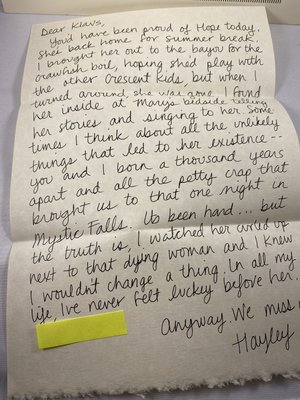 Dear Klaus,
You'd have been proud of Hope today.
She's back home for summer break.
I brought her out to the bayou for the
crawfish boil, hoping she'd play with
the other Crescent kids, but when I
turned around, she was gone. I found
her inside at Mary's bedside telling
her stories and singing to her. Some
times I think about all the unlikely
things that led to her existence--
you and I born a thousand years
apart and all the petty crap that
brought us to that one night in
Mystic Falls. been hard... but
the truth is, I watched her curled up
next to that dying woman and I knew
I wouldn't change a thing. In all my
life, I've never felt luckey before her.
Anyway. We miss
Hayley